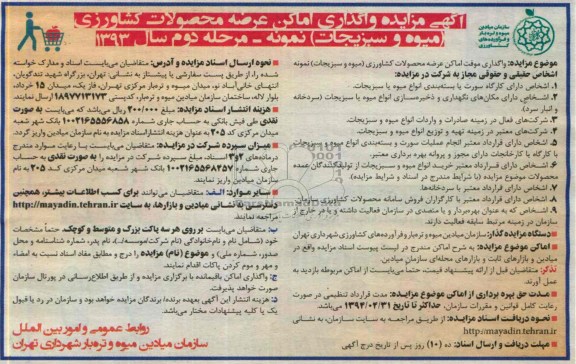 آگهی مزایده واگذاری اماکن عرضه محصولات کشاورزی
(میوه و سبزیجات) نمونه - مرحله دوم سال ۱۳۹۳
سازمان میادین
میوه و تره‌بار
و فرآورده‌های
کشاورزی
موضوع مزایده: واگذاری موقت اماکن عرضه محصولات کشاورزی (میوه و سبزیجات) نمونه
اشخاص حقیقی و حقوقی مجاز به شرکت در مزایده:
۱. اشخاص دارای کارگاه سورت یا بسته‌بندی انواع میوه یا سبزیجات.
۲. اشخاص دارای مکان‌های نگهداری و ذخیره‌سازی انواع میوه یا سبزیجات (سردخانه
و انبار سرد).
۳. شرکت‌های فعال در زمینه صادرات و واردات انواع میوه و سبزیجات.
۴. شرکت‌های معتبر در زمینه تهیه و توزیع انواع میوه و سبزیجات.
۵. اشخاص دارای قرارداد معتبر انجام عملیات سورت و بسته‌بندی انواع میوه و سبزیجات
با کارگاه یا کارخانجات دارای مجوز و پروانه بهره برداری معتبر.
۶. اشخاص دارای قرارداد معتبر خرید انواع میوه و سبزیجات از تولیدکنندگان عمده
محصولات موضوع مزایده (با شرایط مندرج در اسناد و شرایط مزایده).
۷. اشخاص دارای قرارداد معتبر با سردخانه‌ها.
۸. اشخاص دارای قرارداد معتبر با کارگزاران فروش سامانه محصولات کشاورزی سازمان
۹. اشخاصی که به عنوان بهره‌بردار و یا متصدی در سازمان فعالیت داشته و یا در خارج از
سازمان در زمینه مرتبط سابقه فعالیت دارند.
دستگاه مزایده گذار: سازمان میادین میوه و تره‌بار و فرآورده‌های کشاورزی شهرداری تهران
اماکن موضوع مزایده: به شرح اماکن مندرج در لیست پیوست اسناد مزایده واقع در
میادین و بازارهای ثابت و بازارهای محله‌ای سازمان میادین.
تذکر: متقاضیان قبل از ارائه پیشنهاد قیمت، حتما می‌بایست از اماکن مربوطه بازدید به
عمل آورند.
مدت حق بهره برداری از اماکن موضوع مزایده: مدت قرارداد تنظیمی در صورت
رعایت کامل قوانین و مقررات سازمان، حداکثر تا تاریخ ۱۳۹۴/۰۲/۳۱ می‌باشد.
نحوه دریافت اسناد مزایده: از طریق مراجعه به سایت سازمان، به نشانی
http://mayadin.tehran.ir
مهلت دریافت و ارسال اسناد: ده (۱۰) روز پس از تاریخ درج آگهی
نحوه ارسال اسناد مزایده و آدرس: متقاضیان می‌بایست اسناد و مدارک خواسته
شده را، از طریق پست سفارشی یا پیشتاز به نشانی: تهران، بزرگراه شهید تندگویان،
انتهای خانی‌آباد نو، میدان میوه و تره‌بار مرکزی تهران، فاز یک، میدان ۱۵ خرداد،
بلوار لاله، ساختمان سازمان میادین میوه و تره‌بار، کدپستی ۱۸۹۷۷۱۳۱۷۳ ارسال نمایند.
هزینه انتشار اسناد مزایده: مبلغ ۲۰۰/۰۰۰ ریال می‌باشد که می‌بایست به صورت
نقدی طی فیش بانکی به حساب جاری شماره ۱۰۰۲۱۶۵۵۶۸۵۸ بانک شهر شعبه
میدان مرکزی کد ۲۰۵ به عنوان هزینه انتشار اسناد مزایده به نام سازمان میادین واریز گردد.
میزان سپرده شرکت در مزایده: متقاضیان می‌بایست با رعایت موارد مندرج
درماده‌های ۲و۳ اسناد، مبلغ سپرده شرکت در مزایده را به صورت نقدی به حساب
جاری شماره ۱۰۰۲۱۶۵۵۶۸۵۷ بانک شهر شعبه میدان مرکزی کد ۲۰۵ به نام
سازمان میادین واریز نمایند.
سایر موارد: الف: متقاضیان می‌توانند برای کسب اطلاعات بیشتر، همچنین
فهرست نشانی میادین و بازارها، به سایت http://mayadin.tehran.ir
مراجعه نمایند.
ب: متقاضیان می‌بایست بر روی هر سه پاکت بزرگ و متوسط و کوچک، حتماً مشخصات
خود (شامل نام و نام‌خانوادگی (نام شرکت/موسسه/...)، نام پدر، شماره شناسنامه و محل
صدور، شماره ملی) و موضوع (نام) مزایده را درج و مطابق مفاد اسناد نسبت به امضاء
و مهر و موم کردن پاکات اقدام نمایند.
ج: واگذاری اماکن باقیمانده با برگزاری مزایده و از طریق اطلاع‌رسانی در پورتال سازمان
صورت خواهد پذیرفت.
د: هزینه انتشار این آگهی بعهده برنده/ برندگان مزایده خواهد بود و سازمان در رد یا قبول
یک یا کلیه پیشنهادات مختار می‌باشد.
روابط عمومی و امور بین الملل
سازمان میادین میوه و تره‌بار شهرداری تهران